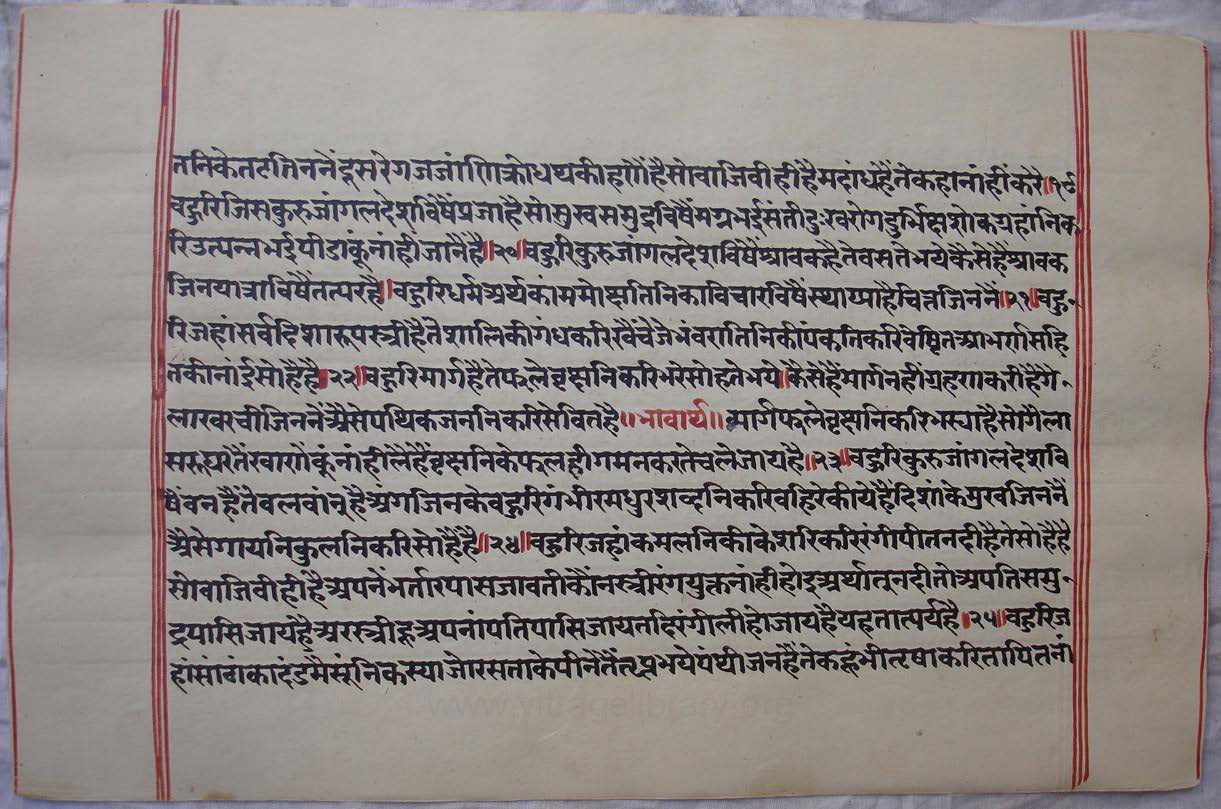 तनिकेतटतिननेंदूसरेगजजांणिक्रोधथकीहणेंहैसोवाजिवीहीहैमदांधहैंतेकहानांहींकरे॥१९॥
बहुरिजिसकुरुजांगलदेशविषेंप्रजाहैसोसुखसमुद्रविषेंमग्नभईसंतीदुःखरोगदुर्भिक्षशोकग्रहांनिक
रिउत्पन्नभईपीडाकूंनांहीजानैहै॥२०॥बहुरिकुरुजांगलदेशविषेंश्रावकहैतेवसतेभयेकैसेहैंश्रावक
जिनयात्राविषैंतत्परहै।बहुरिधर्मअर्थकांममोक्षतिनिकाविचारविषैंस्थाप्याहैचित्तजिननें॥२१॥बहु-
रिजहांसर्वदिशारूपस्त्रीहैतेशालिकीगंधकरिखैंचेजेभंवरातिनिकीपंकतिकरिवेष्टितआभर्णसहि
तकीनांईसोहैहै॥२२॥बहुरिमार्गहैतेफलेवृक्षनिकरिभरेसोहतेभये।कैसेहैंमार्गनहीग्रहणकरीहैगै-
लाखरचीजिननेंअैसेपथिकजननिकरिसेवितहै॥भावार्थ॥मार्गफलेवृक्षनिकरिभर्याहैसोगैला
सरूघरतेंखाणेंकूंनांहीलैहैंवृक्षनिकेफलहीगमनकरतेचलेजायहै॥२३॥बहुरिकुरुजांगलदेशवि
षैंवनहैंतेवलवांनूहैअंगजिनकेवहुरिगंभीरमधुरशव्दनिकरिवहिरेकीयेहैंदिशांकेमुखजिननें
अैसेगायनिकुलनिकरिसोहैंहै॥२४॥बहुरिजहांकमलनिकीकेशरिकरिरंगीपीतनदीहैतेसोहैहै
सोवाजिवीहीहैअपनेंभर्तारपासजावतीकौंनस्त्रीरंगयुक्तनांहीहोइअर्थातूनदीतोअपतिसमु-
द्रपासिजायहैअरस्त्रीहूअपनांपतिपासिजायतदिरंगीलीहोजायहैयहतात्पर्यहै।२५॥बहुरिज
हांसांठांकादंडमैंसूंनिकस्याजोरसताकेपीनेतेंतृप्तभयेपंथीजनहैंतेकहूंभीतृषाकरितापितनां